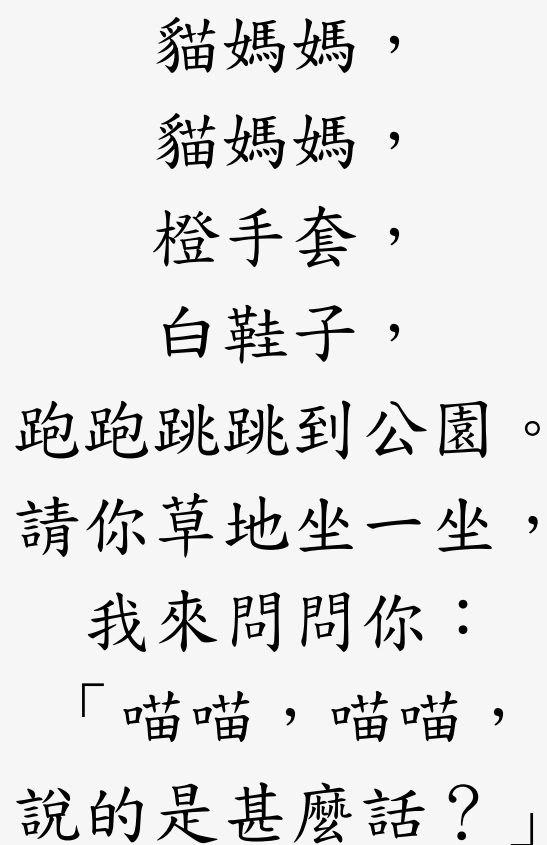 貓媽媽，
貓媽媽，
橙手套，
白鞋子，
跑跑跳跳到公園。
請你草地坐一坐，
我來問問你：
「喵喵，喵喵，
說的是甚麼話？」